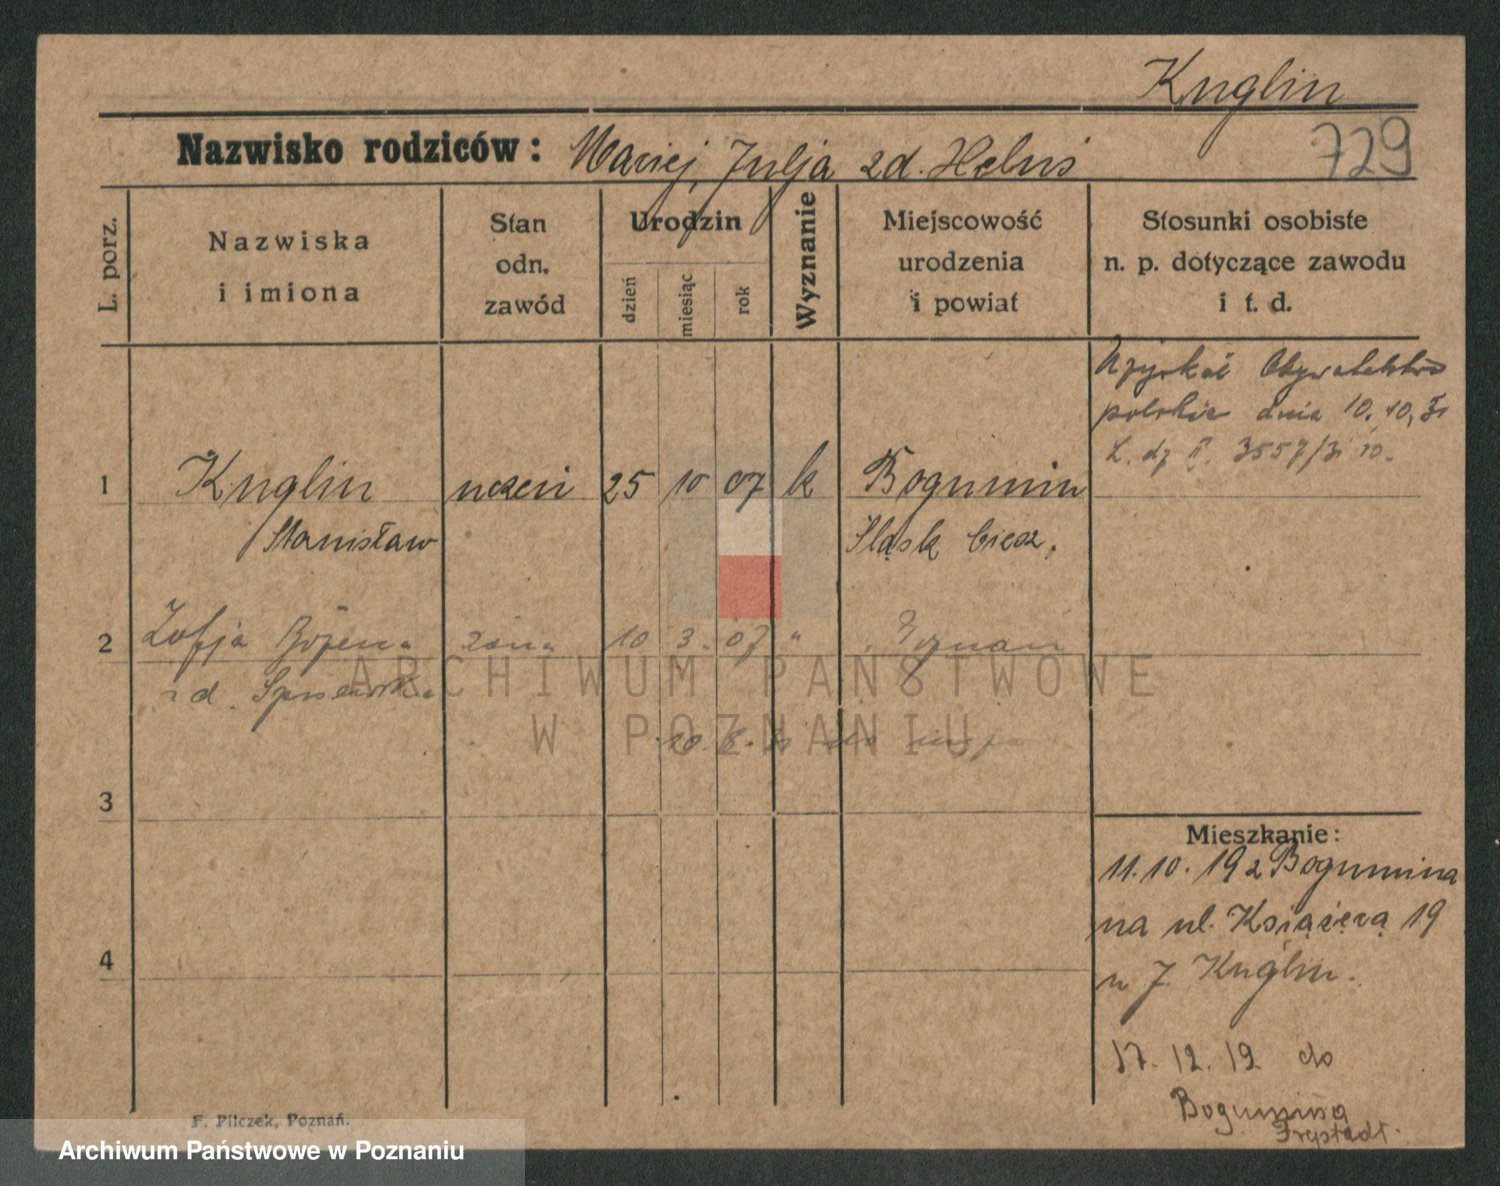 Kuglin
Nazwisko rodziców: Maciej, Julja zd. Helus
729
L. porz.
Nazwiska
i imiona
Stan
odn.
zawód
Urodzin
dzień
miesiąc
rok
Wyznanie
Miejscowość
urodzenia
i powiat
Stosunki osobiste
n. p. dotyczące zawodu
i t. d.
Uzyskał Obywatelstwo
polskie dnia 10. 10.
L. dz. 3557/31
1 Kuglin uczeń 25 10 07 k Bogumin
Stanisław Śląsk Ciesz.
2 Zofja Bożena żona 10 3. 07 " Poznań
zd.
10.
3
Mieszkanie:
11.10.19 z Bogumina
na ul. Książęcą 19
4
u J. Kuglin.
17. 12. 19 do
Bogumina
Frystadt.
F. Pilczek, Poznań.
ARCHIWUM PAŃSTWOWE
W POZNANIU
Archiwum Państwowe w Poznaniu